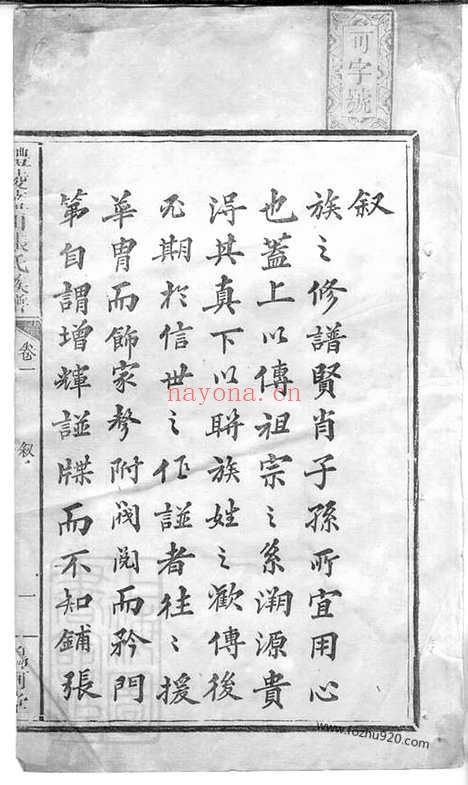 可字號
叙
族之修譜賢肖子孫所宜用心
也蓋上以傳祖宗之系溯源貴
淂其真下以聨族姓之歡傳後
汜期於信世之作諩者往々援
華冑而飾家聲附閥閱而矜門
第自謂增輝諩牒而不知鋪張
氏族譜
卷一
叙
一
hayona.cn
www.fozhu920.com